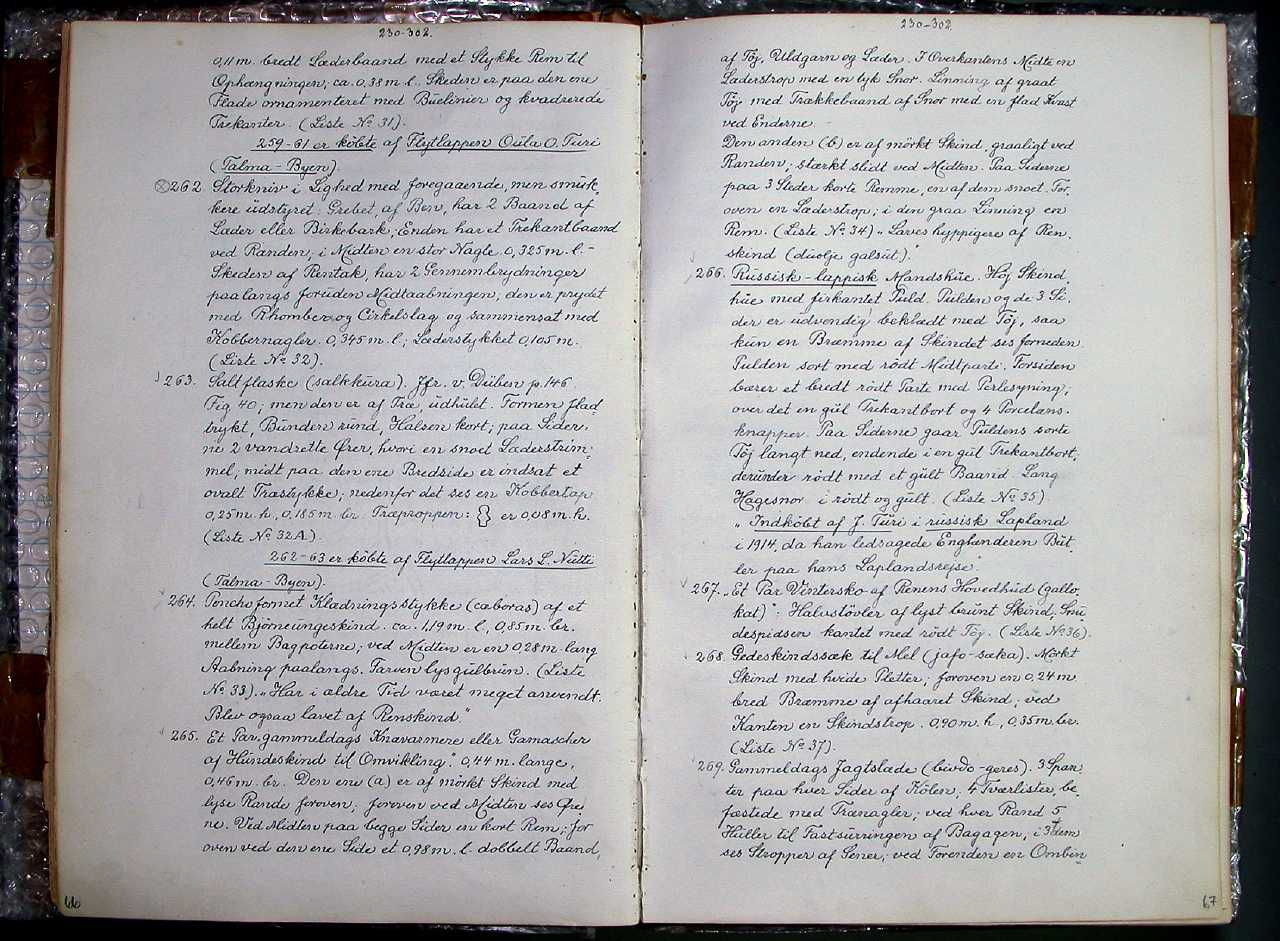 230-302.
0,11 m. bredt Læderbaand med et Stykke Rem til
Ophængningen; ca. 0,38 m. l. Skeden er paa den ene
Flade ornamenteret med Buelinier og kvadrerede
Trekanter. (Liste No 31).
259-61 er købte af Flytlappen Oula O. Turi
(Talma-Byen).
262. Storkniv i Lighed med foregaaende, men smuk-
kere udstyret. Grebet, af Ben, har 2 Baand af
Læder eller Birkebark; Enden har et Trekantbaand
ved Randen, i Midten en stor Nagle. 0,325 m. l. -
Skeden af Rentak, har 2 Gennembrydninger
paalangs foruden Midtaabningen; den er prydet
med Rhomber og Cirkelslag og sammensat med
Kobbernagler. 0,345 m. l.; Læderstykket 0,105 m.
(Liste No 32).
263. Saltflaske (salkkura). Jfr. v. Düben p. 146
Fig. 40; men den er af Træ, udhulet. Formen flad-
trykt, Bunden rund, Halsen kort; paa Sider-
ne 2 vandrette Ører, hvori en snoet Læderstrim-
mel; midt paa den ene Bredside er indsat et
ovalt Træstykke; nedenfor det ses en Kobbertap
0,25 m. h., 0,185 m. br. Træproppen: er 0,08 m. h.
(Liste No 32A).
262-63 er købte af Flytlappen Lars L. Nutti
(Talma-Byen).
264. Ponchoformet Klædningsstykke (cæboras) af et
helt Björneungeskind. ca. 1,19 m. l., 0,85 m. br.
mellem Bagpoterne; ved Midten er en 0,28 m. lang
Aabning paalangs. Farven lysgulbrun. (Liste
No 33). "Har i ældre Tid været meget anvendt.
Blev ogsaa lavet af Renskind."
265. Et Par "gammeldags Knævarmere eller Gamascher
af Hundeskind til Omvikling". 0,44 m. lange,
0,46 m. br. Den ene (a) er af mörkt Skind med
lyse Rande foroven; foroven ved Midten ses Öre
ne. Ved Midten paa begge Sider en kort Rem; for
oven ved den ene Side et 0,98 m. l. dobbelt Baand,
66
230-302.
af Töj, Uldgarn og Læder. I Overkantens Midte en
Læderstrop med en tyk Snor. Linning af graat
Töj med Trækkebaand af Snor med en flad Kvast
ved Enderne. -
Den anden (b) er af mörkt Skind, graaligt ved
Randen; stærkt slidt ved Midten. Paa Siderne
paa 3 Steder korte Remme, en af dem snoet. For-
oven en Læderstrop; i den graa Linning en
Rem. (Liste No 34) "Laves hyppigere af Ren-
skind (duolje galsut)."
266. Russisk-lappisk Mandshue. Höj Skind-
hue med firkantet Puld. Pulden og de 3 Si-
der er udvendig beklædt med Töj, saa
kun en Bræmme af Skindet ses forneden
Pulden sort med rödt Midtparti. Forsiden
bærer et bredt rödt Parti med Perlesyning;
over det en gul Trekantbort og 4 Porcelæns-
knapper. Paa Siderne gaar Puldens sorte
Töj langt ned, endende i en gul Trekantbort;
derunder rödt med et gult Baand. Lang
Hagesnor i rödt og gult. (Liste No 35)
"Indköbt af J. Turi i russisk Lapland
i 1914, da han ledsagede Englænderen But-
ler paa hans Laplandsrejse."
267. "Et Par Vintersko af Renens Hovedhud (gallo-
kat)": Halvstövler af lyst brunt Skind, Snu-
despidsen kantet med rödt Töj. (Liste No 36).
268. Gedeskindssæk til Mel (jafo-sæka). Mörkt
Skind med hvide Pletter; foroven en 0,24 m.
bred Bræmme af afhaaret Skind; ved
Kanten en Skindstrop. 0,90 m. h., 0,35 m. br.
(Liste No 37).
269. Gammeldags Jagtslæde (bivdo-geres). 3 Span-
ter paa hver Side af Kölen; 4 Tværlister be-
fæstede med Trænagler; ved hver Rand 5
Huller til Fastsurringen af Bagagen, i 3 dem
ses Stropper af Sener; ved Forenden en Ombin-
67